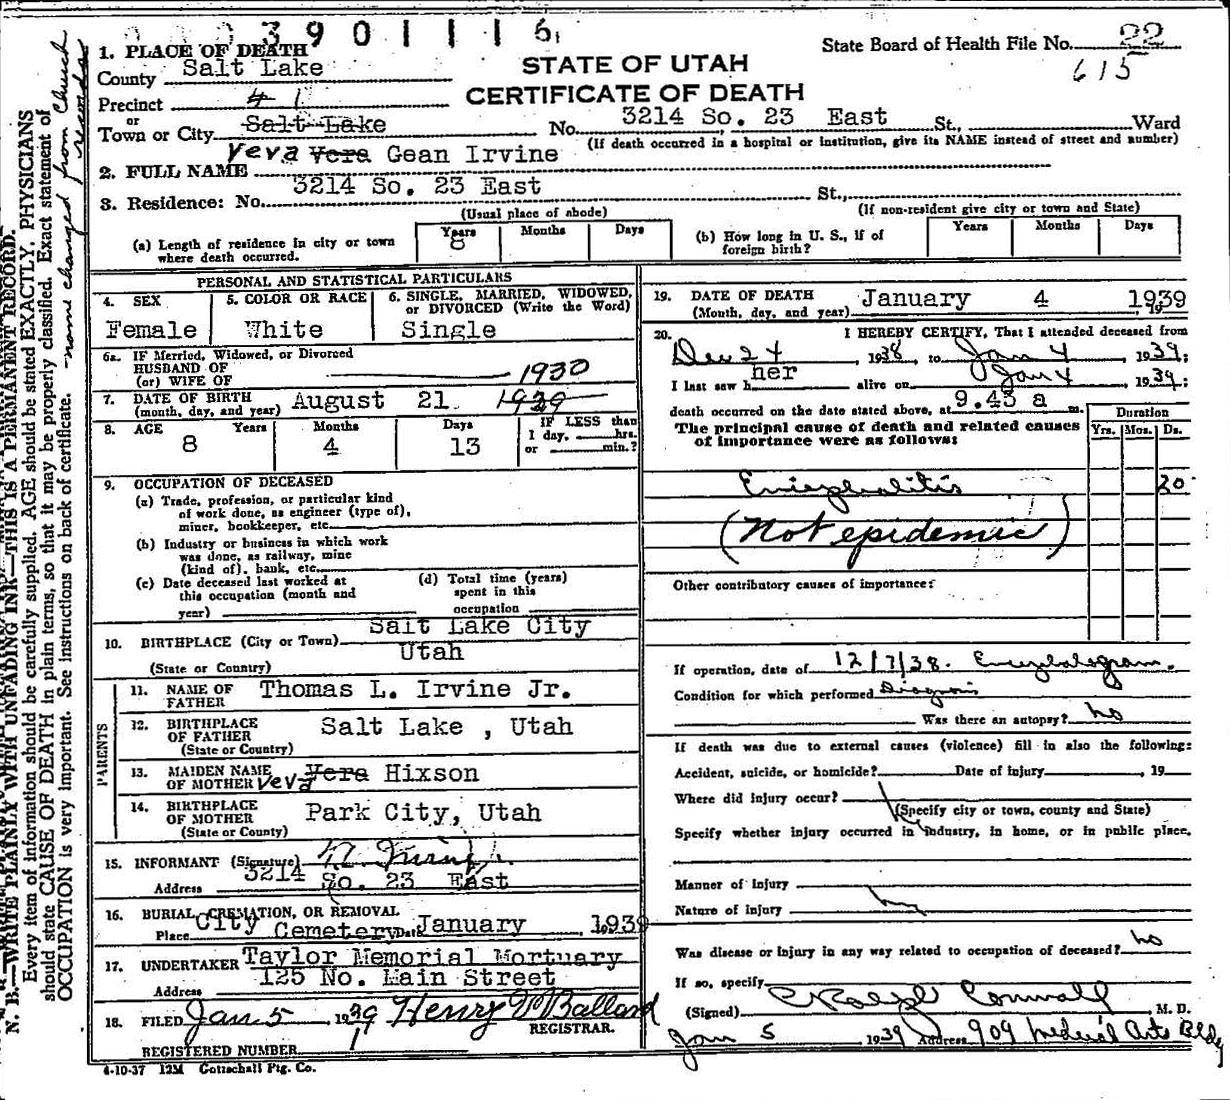 3 9 0 1 1 1 6
State Board of Health File No. 22
615
STATE OF UTAH
CERTIFICATE OF DEATH
1. PLACE OF DEATH
County Salt Lake
Precinct 41
or
Town or City Salt Lake No. 3214 So. 23 East St., Ward
(If death occurred in a hospital or institution, give its NAME instead of street and number)
2. FULL NAME Veva Vera Gean Irvine
3. Residence: No. 3214 So. 23 East St.,
(Usual place of abode) (If non-resident give city or town and State)
(a) Length of residence in city or town where death occurred. Years 8 Months Days
(b) How long in U. S., if of foreign birth? Years Months Days
PERSONAL AND STATISTICAL PARTICULARS
4. SEX 5. COLOR OR RACE 6. SINGLE, MARRIED, WIDOWED, or DIVORCED (Write the Word)
Female White Single
6a. IF Married, Widowed, or Divorced
HUSBAND OF
(or) WIFE OF
1930
7. DATE OF BIRTH (month, day, and year) August 21 1939
8. AGE Years Months Days IF LESS than
8 4 13 1 day, hrs.
or min.?
9. OCCUPATION OF DECEASED
(a) Trade, profession, or particular kind
of work done, as engineer (type of),
miner, bookkeeper, etc.
(b) Industry or business in which work
was done, as railway, mine
(kind of), bank, etc.
(c) Date deceased last worked at
this occupation (month and
year)
(d) Total time (years)
spent in this
occupation
10. BIRTHPLACE (City or Town) Salt Lake City
(State or Country) Utah
PARENTS
11. NAME OF FATHER Thomas L. Irvine Jr.
12. BIRTHPLACE OF FATHER (State or Country) Salt Lake , Utah
13. MAIDEN NAME OF MOTHER Veva Vera Hixson
14. BIRTHPLACE OF MOTHER (State or County) Park City, Utah
15. INFORMANT (Signature)
Address 3214 So. 23 East
16. BURIAL, CREMATION, OR REMOVAL
Place City Cemetery Date January , 1939
17. UNDERTAKER Taylor Memorial Mortuary
Address 125 No. Main Street
18. FILED Jan 5 1939 Henry Ballard
REGISTRAR.
REGISTERED NUMBER 1
4-10-37 12M Gottschall Ptg. Co.
19. DATE OF DEATH (Month, day, and year) January 4 1939
20. I HEREBY CERTIFY, That I attended deceased from
Dec 24 1938, to Jan 4, 1939;
I last saw her alive on Jan 4, 1939;
death occurred on the date stated above, at 9.43 a m.
The principal cause of death and related causes
of importance were as follows:
Duration
Yrs. Mos. Ds.
Encephalitis 20
(Not epidemic)
Other contributory causes of importance:
If operation, date of 12/7/38. Encephalogram.
Condition for which performed Diagnosis
Was there an autopsy? no
If death was due to external causes (violence) fill in also the following:
Accident, suicide, or homicide? Date of injury , 19
Where did injury occur?
(Specify city or town, county and State)
Specify whether injury occurred in industry, in home, or in public place.
Manner of injury
Nature of injury
Was disease or injury in any way related to occupation of deceased? no
If so, specify
(Signed) Ralph Cornwall, M. D.
Jan 5 1939 Address 909 Medical Arts Bldg
N. B.—WRITE PLAINLY WITH UNFADING INK—THIS IS A PERMANENT RECORD.
Every item of information should be carefully supplied. AGE should be stated EXACTLY. PHYSICIANS
should state CAUSE OF DEATH in plain terms, so that it may be properly classified. Exact statement of
OCCUPATION is very important. See instructions on back of certificate.
name changed from Church records